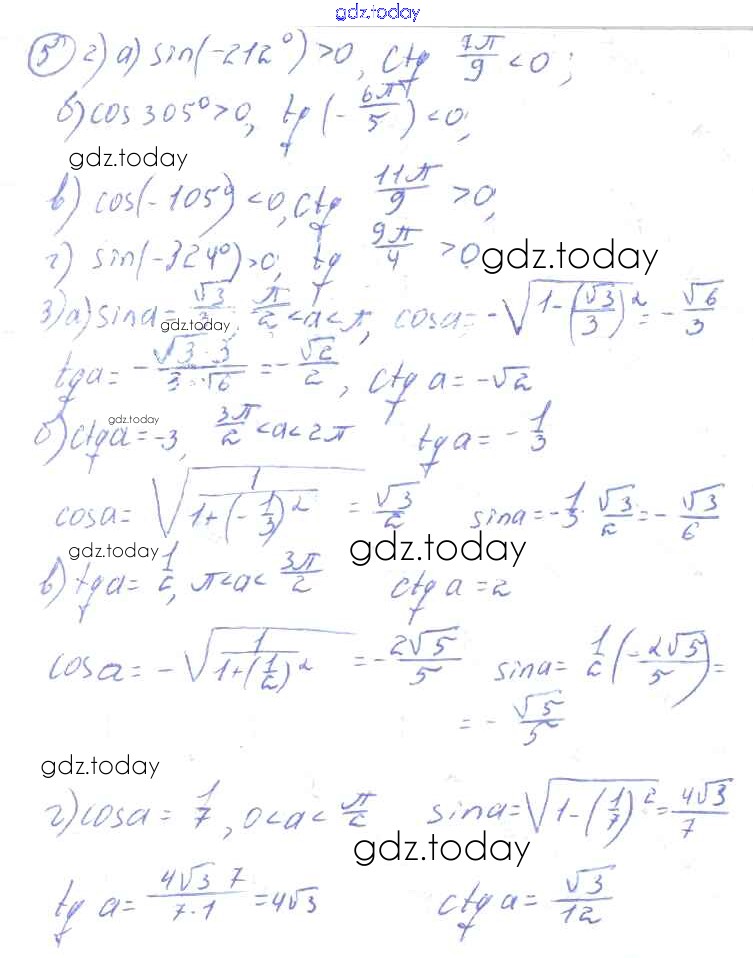 gdz.today
5 2) а) sin(-212°) > 0, ctg 7π/9 < 0;
б) cos 305° > 0, tg(-6π/5) < 0,
gdz.today
в) cos(-105°) < 0, ctg 11π/9 > 0,
г) sin(-324°) > 0, tg 9π/4 > 0 gdz.today
3) а) sin a = √3/3, π/2 < a < π, cos a = -√(1-(√3/3)²) = -√6/3
gdz.today
tg a = -√3·3/3·√6 = -√2/2, ctg a = -√2
gdz.today
б) ctg a = -3, 3π/2 < a < 2π tg a = -1/3
cos a = √(1/(1+(-1/3)²)) = √3/2 sin a = -1/3·√3/2 = -√3/6
gdz.today gdz.today
в) tg a = 1/2, π < a < 3π/2 ctg a = 2
cos a = -√(1/(1+(1/2)²)) = -2√5/5 sin a = 1/2(-2√5/5) =
= -√5/5
gdz.today
г) cos a = 1/7, 0 < a < π/2 sin a = √(1-(1/7)²) = 4√3/7
gdz.today
tg a = 4√3 7/7·1 = 4√3 ctg a = √3/12